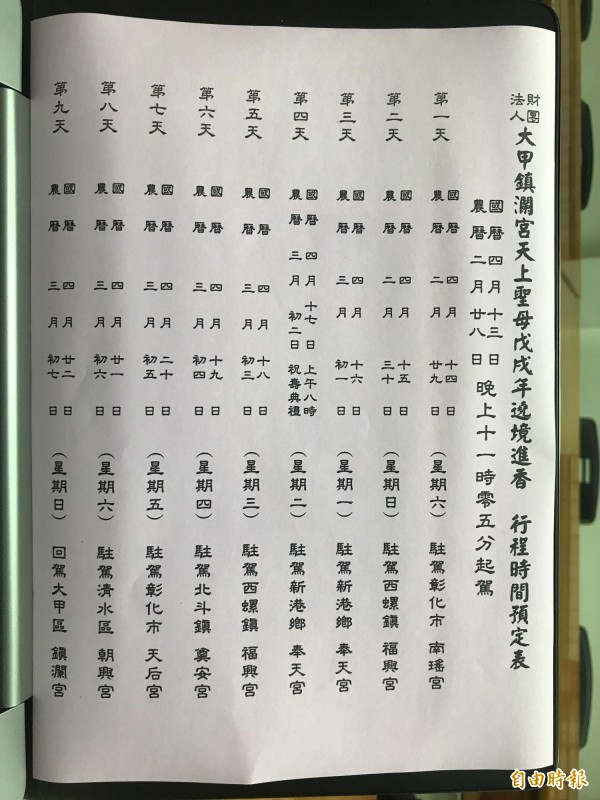 財團法人大甲鎮瀾宮天上聖母戊戌年遶境進香 行程時間預定表
國曆 四月 十三日
農曆 二月 廿八日
晚上十一時零五分起駕
第一天 國曆 四月 十四日 農曆 二月 廿九日 (星期六) 駐駕彰化市 南瑤宮
第二天 國曆 四月 十五日 農曆 二月 三十日 (星期日) 駐駕西螺鎮 福興宮
第三天 國曆 四月 十六日 農曆 三月 初一日 (星期一) 駐駕新港鄉 奉天宮
第四天 國曆 四月 十七日 上午八時 農曆 三月 初二日 祝壽典禮 (星期二) 駐駕新港鄉 奉天宮
第五天 國曆 四月 十八日 農曆 三月 初三日 (星期三) 駐駕西螺鎮 福興宮
第六天 國曆 四月 十九日 農曆 三月 初四日 (星期四) 駐駕北斗鎮 奠安宮
第七天 國曆 四月 二十日 農曆 三月 初五日 (星期五) 駐駕彰化市 天后宮
第八天 國曆 四月 廿一日 農曆 三月 初六日 (星期六) 駐駕清水區 朝興宮
第九天 國曆 四月 廿二日 農曆 三月 初七日 (星期日) 回駕大甲區 鎮瀾宮
自由時報